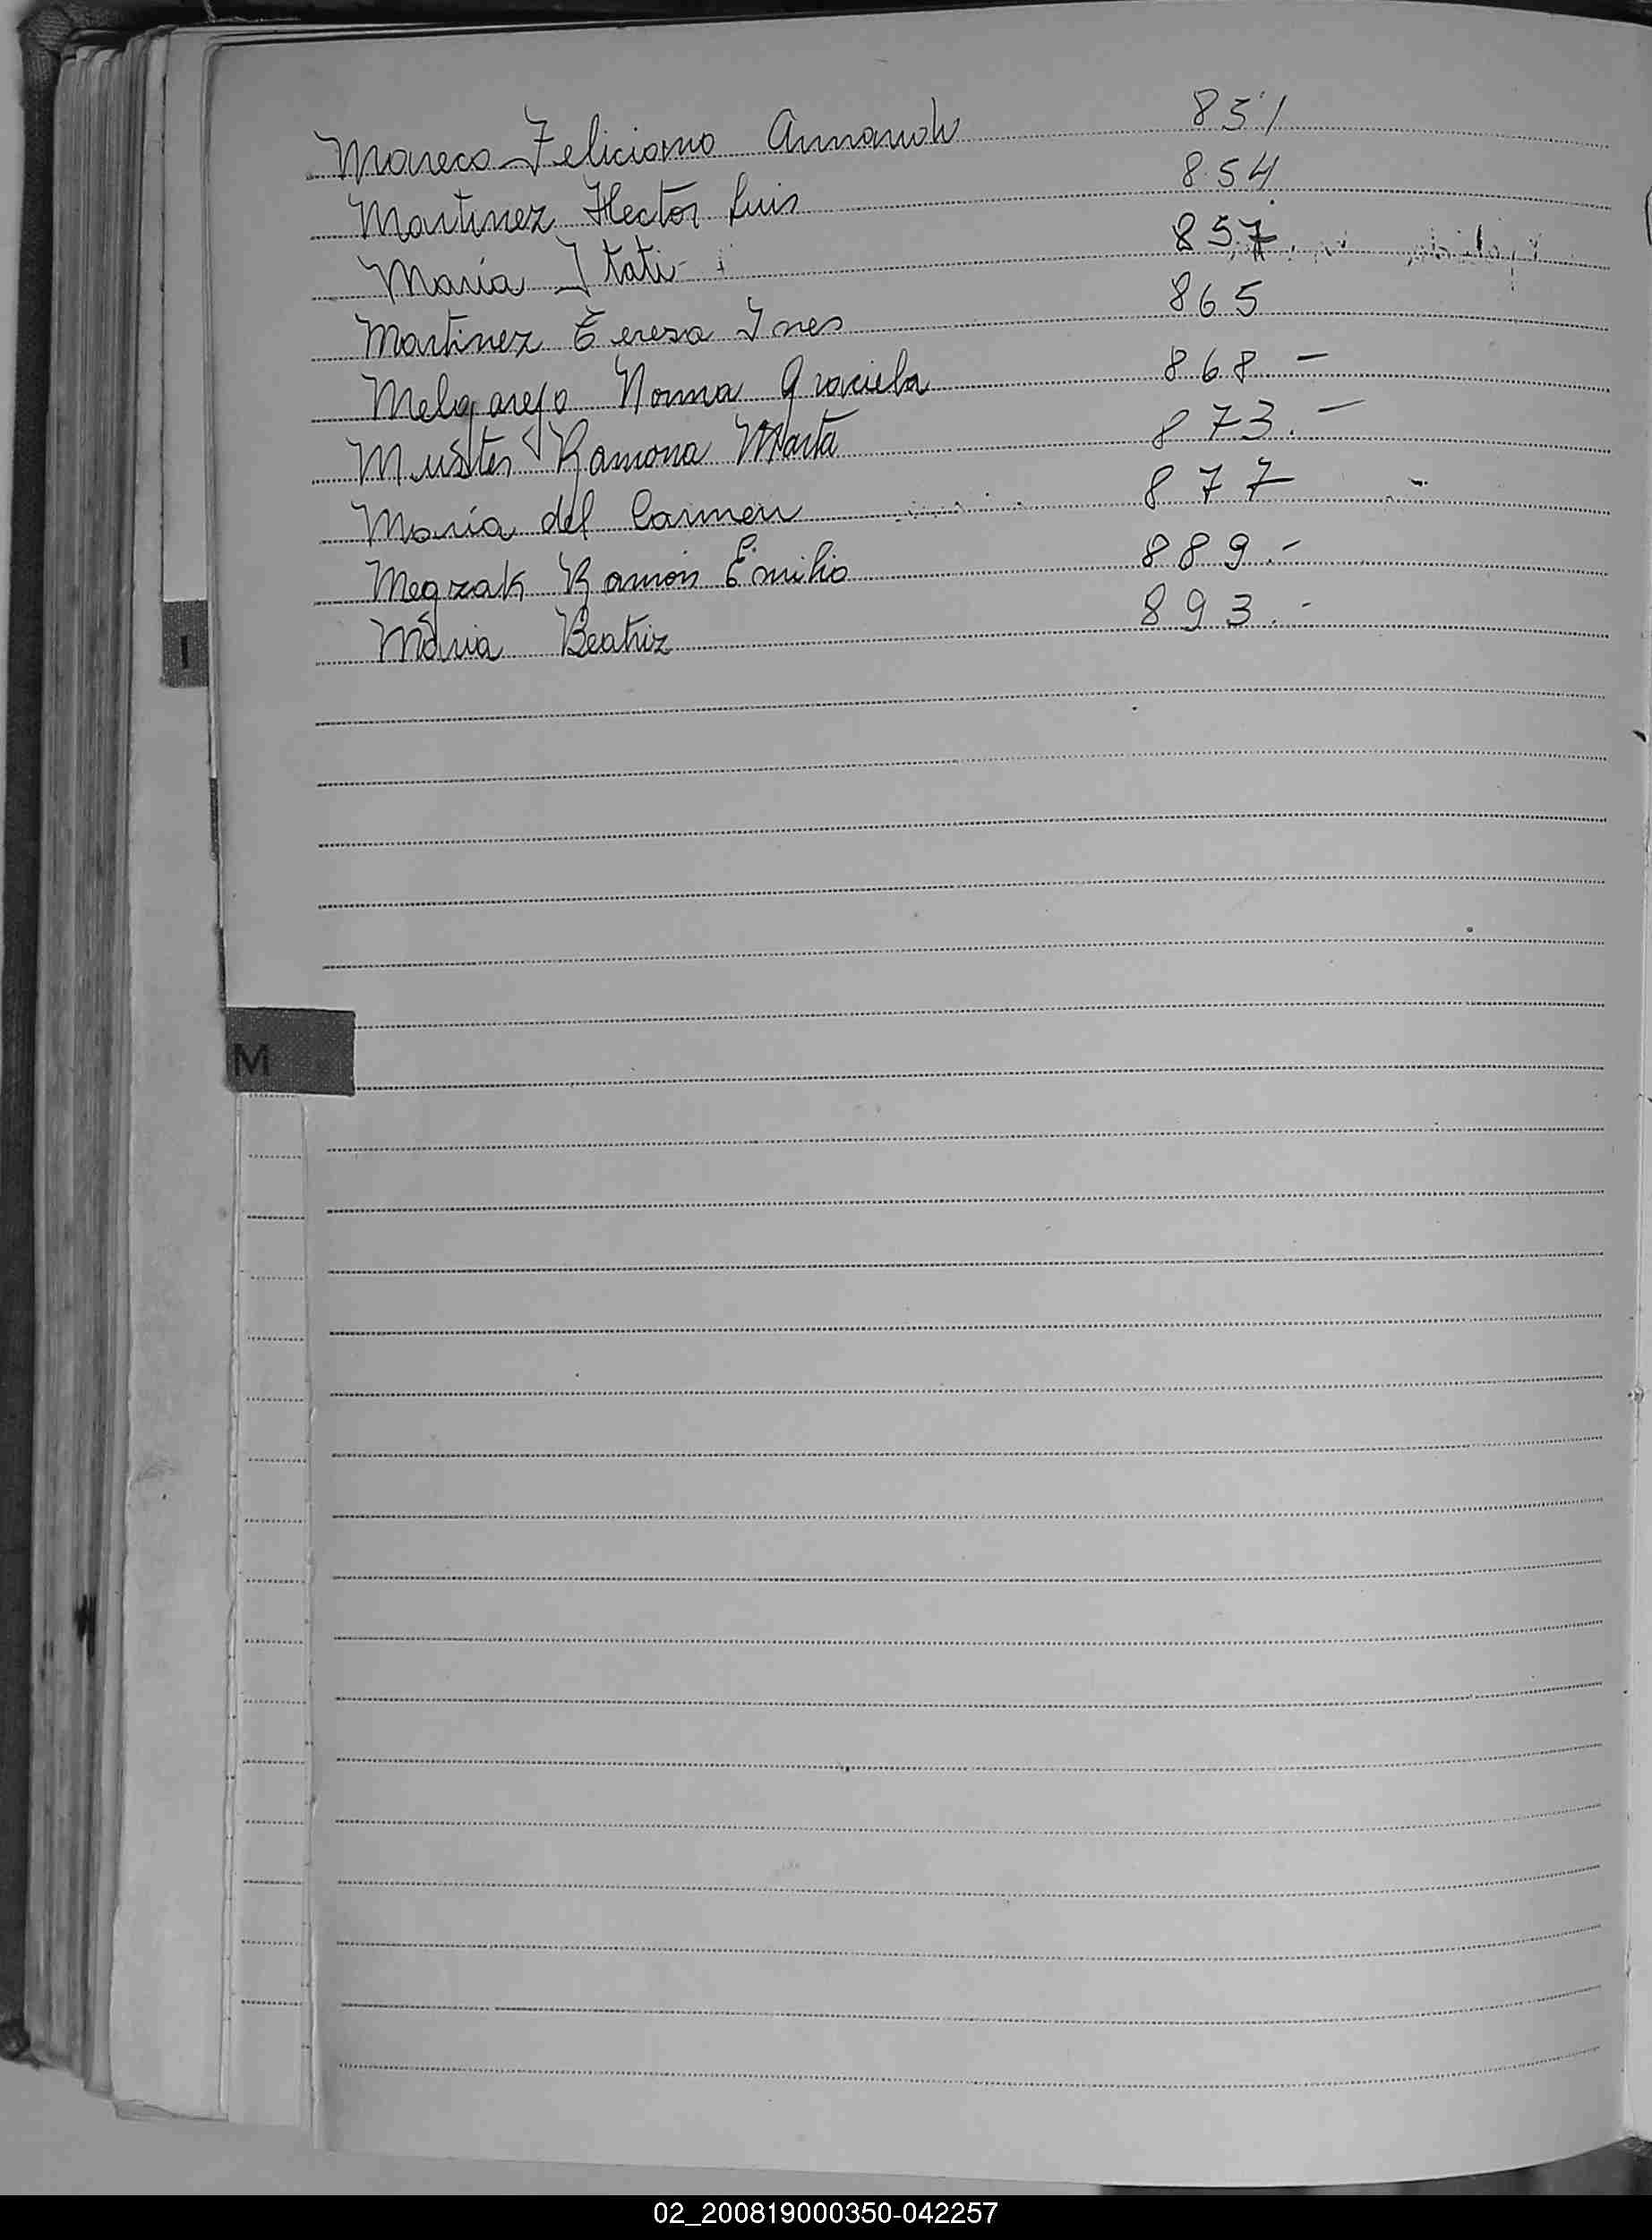 Mareco Feliciano Armando 851
Martinez Hector Luis 854
María Itati 857
Martinez Teresa Ines 865
Melgarejo Norma Graciela 868 -
Ramona Marta 873.-
María del Carmen 877 -
Megzak Ramón Emilio 889.-
María Beatriz 893.-
I
M
02_200819000350-042257